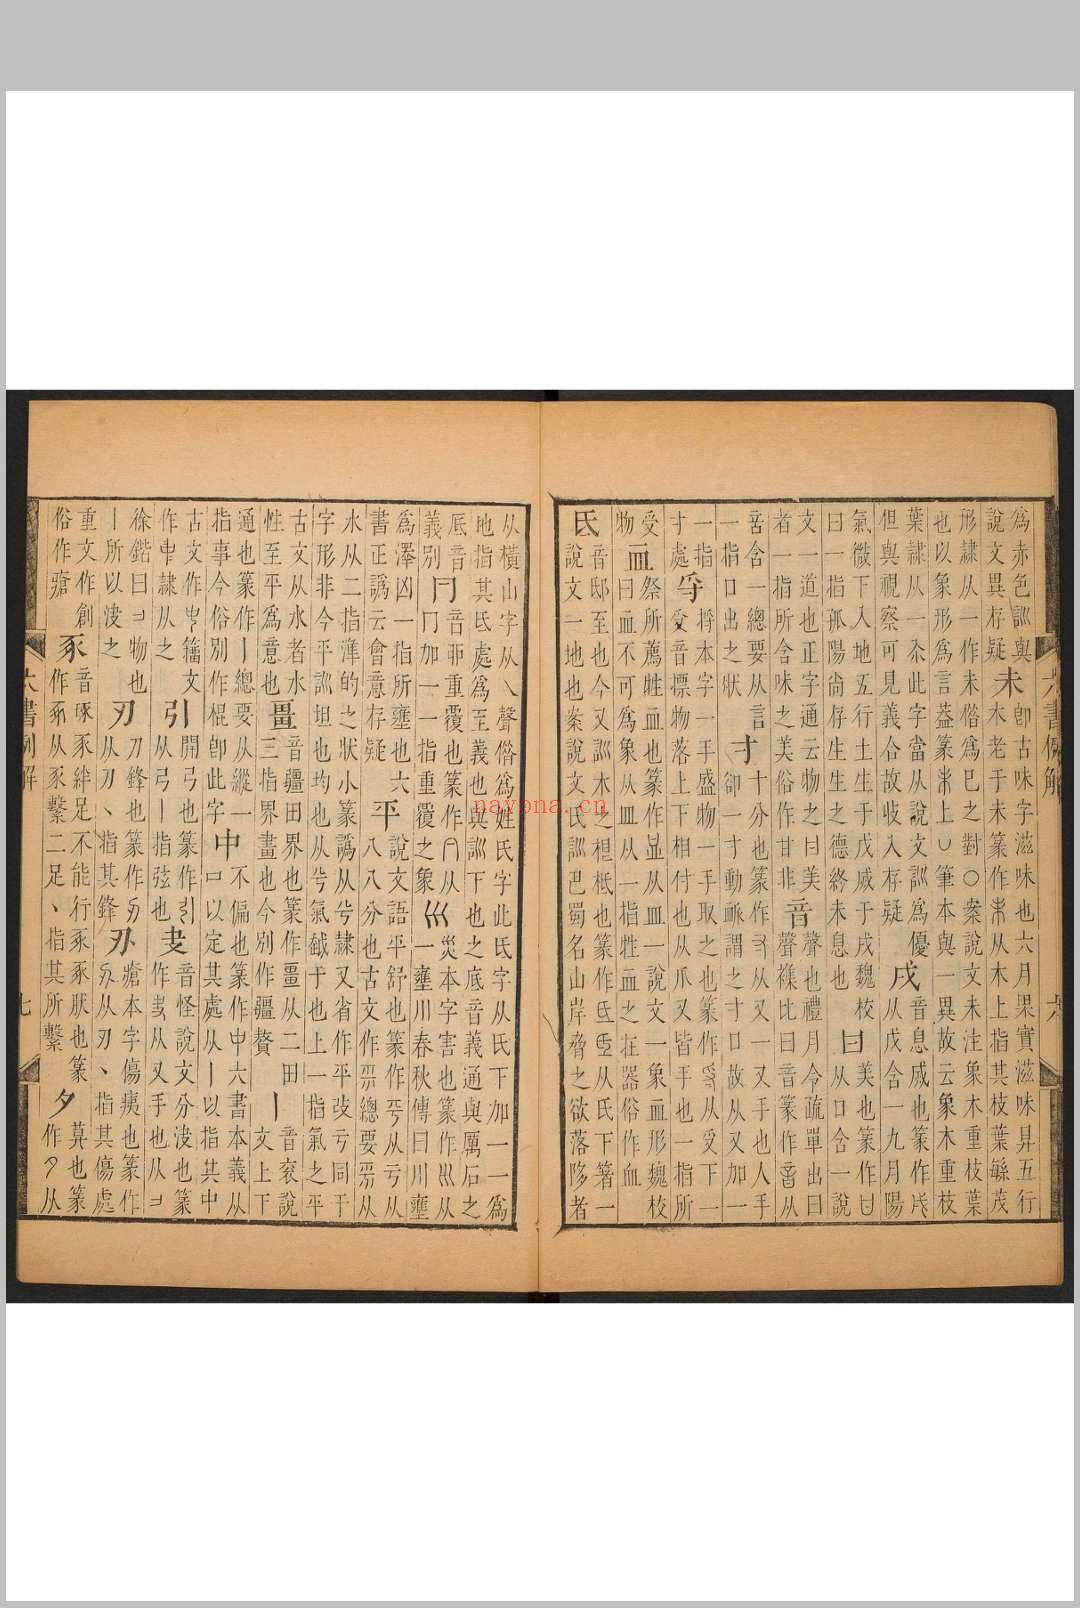 為赤色訓與
說文異存疑
未
卽古味字滋味也六月果實滋味昇五行
木老于未篆作从木上指其枝葉緐茂
形隸从一作未俗爲巳之對〇案說文未注象木重枝葉
也以象形爲言葢篆上∪筆本與一異故云象木重枝
葉隸从一
此字當从說文訓爲優
但與視察可見義合故收入存疑
戌
音息戚也篆作
从戊含一九月陽
氣微下入地五行土生于戊戚于戌魏校
曰一指孤陽尚存生生之德終未息也
甘
美也篆作甘
从口含一說
文一道也正字通云物之甘美
者一指所含味之美俗作甘非
音
聲也禮月令疏單出曰
聲襍比曰音篆作音从
言含一總要从言
寸
十分也篆作
从又一又手也人手
一指口出之狀
卻一寸動脈謂之寸口故从又加一
一指
寸處
寽
捋本字一手盛物一手取之也篆作
从受下一
受音摽物落上下相付也从爪又皆手也一指所
受
物
血
祭所薦牲血也篆作从皿一說文一象血形魏校
曰皿不可爲象从皿从一指牲血之在器俗作血
氐
音邸至也今又訓木之根柢也篆作氐从氏下箸一
說文一地也案說文氏訓巴蜀名山岸脅之欲落陊者
从橫山字从乀聲俗爲姓氏字此氐字从氏下加一一爲
地指其氐處爲至義也與訓下也之底音義通與厲石之
底音
義別
冂
音冪重覆也篆作冂从
冂加一一指重覆之象
巛
災本字害也篆作巛从
一壅川春秋傳曰川壅
爲澤凶一指所壅也六
書正譌云會意存疑
平
說文語平舒也篆作从亏从
八八分也古文作總要从
水从二指準的之狀小篆譌从兮隸又省作平改亏同于
字形非今平訓坦也均也从兮氣越于也上一指氣之平
古文从水者水
性至平爲意也
畺
音疆田界也篆作畺从二田
三指界畫也今別作疆贅
丨
音衮說
文上下
通也篆作丨總要从縱一
指事今俗別作棍卽此字
中
不偏也篆作中六書本義从
口以定其處从丨以指其中
古文作籒文
作隸从之
引
開弓也篆作引
从弓丨指弦也
叏
音怪說文分決也篆
作从又手也从コ
徐鍇曰コ物也
丨所以決之
刃
刀鋒也篆作
从刀丶指其鋒
刅
瘡本字傷痍也篆作
从刀丶指其傷處
重文作創
俗作瘡
豖
音啄豕絆足不能行豕豕狀也篆
作从豕繫二足丶指其所繫
夕
莫也篆
作从
六書例解
六
六書例解
七
nayona.cn